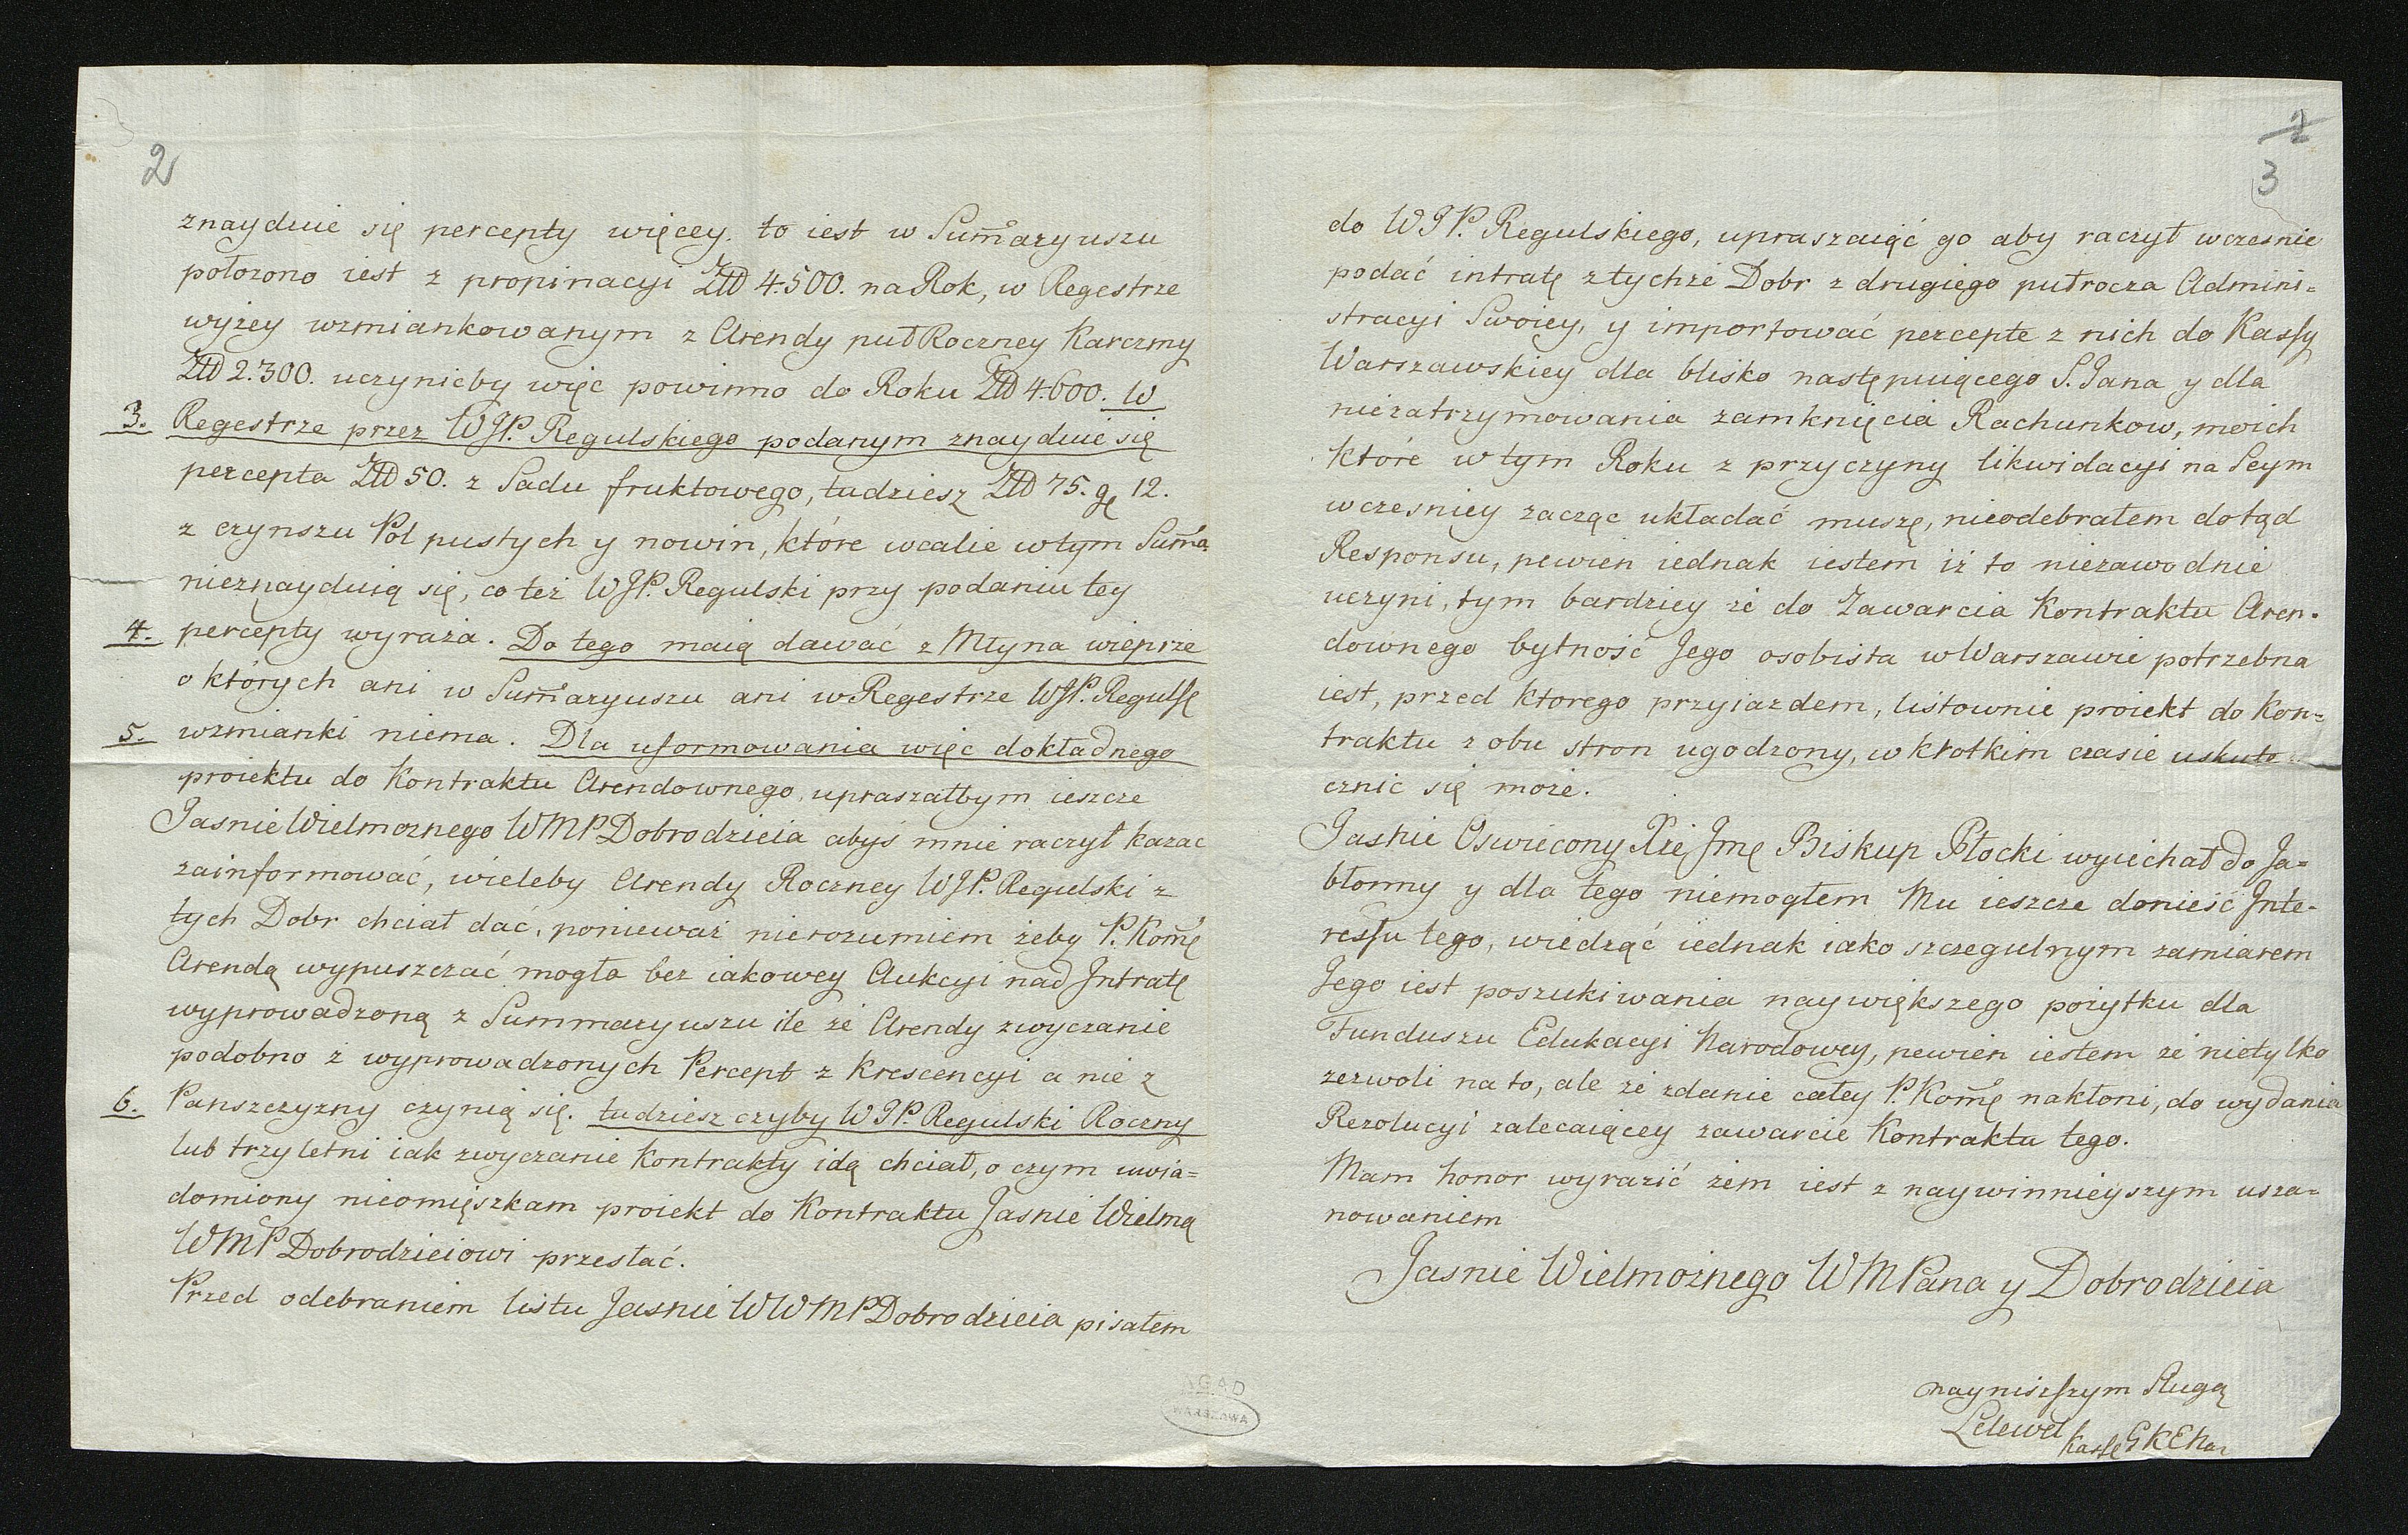 2
znayduie się percepty więcey. to iest w Summaryuszu
połozono iest z propinacyi Złł 4.500. na Rok, w Regestrze
wyżey wzmiankowanym z Arendy puł Roczney Karczmy
Złł 2.300. uczynićby więc powinno do Roku Złł 4.600. W
3. Regestrze przez WJP. Regulskiego podanym znayduie się
percepta Złł 50. z Sadu fruktowego, tudziesz Złł 75. gę 12.
z czynszu Pol pustych y nowin, które wcalie w tym Summa.
nieznayduią się, co też WJP. Regulski przy podaniu tey
4. percepty wyraża. Do tego maią dawać z Młyna wieprze
o których ani w Summaryuszu ani w Regestrze WJP. Regulsę
5. wzmianki niema. Dla uformowania więc dokładnego
proiektu do Kontraktu Arendownego, upraszałbym ieszcze
Jasnie Wielmoznego WMP Dobrodzieia abys mnie raczył kazac
zainformować, wieleby Arendy Roczney WJP. Regulski z
tych Dobr chciał dać, ponieważ nierozumiem żeby P. Komę
Arendą wypuszczać mogła bez iakowey Aukcyi nad Jntratę
wyprowadzoną z Summaryuszu ile że Arendy zwyczanie
podobno z wyprowadzonych Percept z Krescencyi a nie z
6. Panszczyzny czynią się. tudziesz czyby WJP. Regulski Roczny
lub trzyletni iak zwyczanie Kontrakty idą chciał, o czym uwia=
domiony nieomięszkam proiekt do Kontraktu Jasnie Wielmą
WMP Dobrodzieiowi przesłać.
Przed odebraniem listu Jasnie WWMP Dobrodzieia pisałem
AGAD
WARSZAWA
2
3
do WJP. Regulskiego, upraszaiąć go aby raczył wczesnie
podać intratę z tychże Dobr z drugiego pułrocza Admini=
stracyi Swoiey, y importować percepte z nich do Kassy
Warszawskiey dla blisko następuiącego S. Jana y dla
niezatrzymowania zamknięcia Rachunkow, moich
które w tym Roku z przyczyny likwidacyi na Seym
wczesniey zacząc układać muszę, nieodebrałem dotąd
Responsu, pewien iednak iestem iż to niezawodnie
uczyni, tym bardziey że do Zawarcia Kontraktu Aren.
downego bytność Jego osobista w Warszawie potrzebna
iest, przed ktorego przyiazdem, listownie proiekt do Kon=
traktu z obu stron ugodzony, w krotkim czasie uskute=
cznic się może.
Jasnie Oswiecony Xże Jmę Biskup Płocki wyiechał do Ja=
błonny y dla tego niemogłem Mu ieszcze donieść Jnte-
ressu tego, wiedząć iednak iako szczegulnym zamiarem
Jego iest poszukiwania naywiększego pożytku dla
Funduszu Edukacyi Narodowey, pewien iestem że nietylko
zezwoli na to, ale że zdanie całey P. Komę nakłoni, do wydania
Rezolucyi zalecaiącey zawarcie Kontraktu tego.
Mam honor wyrazić żem iest z naywinnieyszym usza=
nowaniem
Jasnie Wielmożnego WMPana y Dobrodzieia
nayniższym Sługą
Lelewel Kassę GKENar